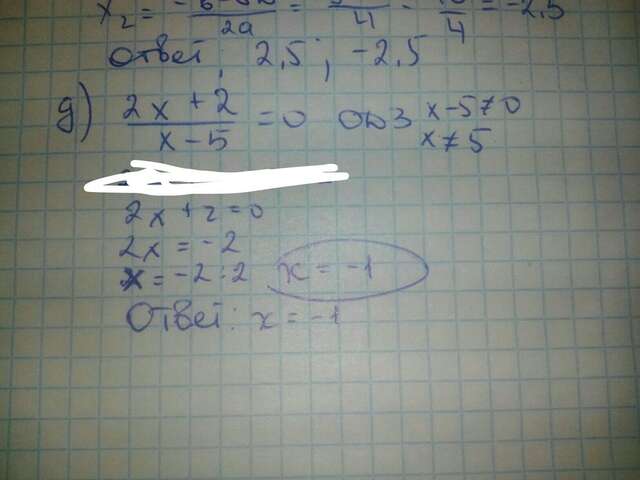 x₂ = = = -2,5
2a 4 4
Ответ: 2,5; -2,5
д) (2x + 2)/(x - 5) = 0 ОДЗ x - 5 ≠ 0
x ≠ 5
2x + 2 = 0
2x = -2
x = -2 : 2 x = -1
Ответ: x = -1